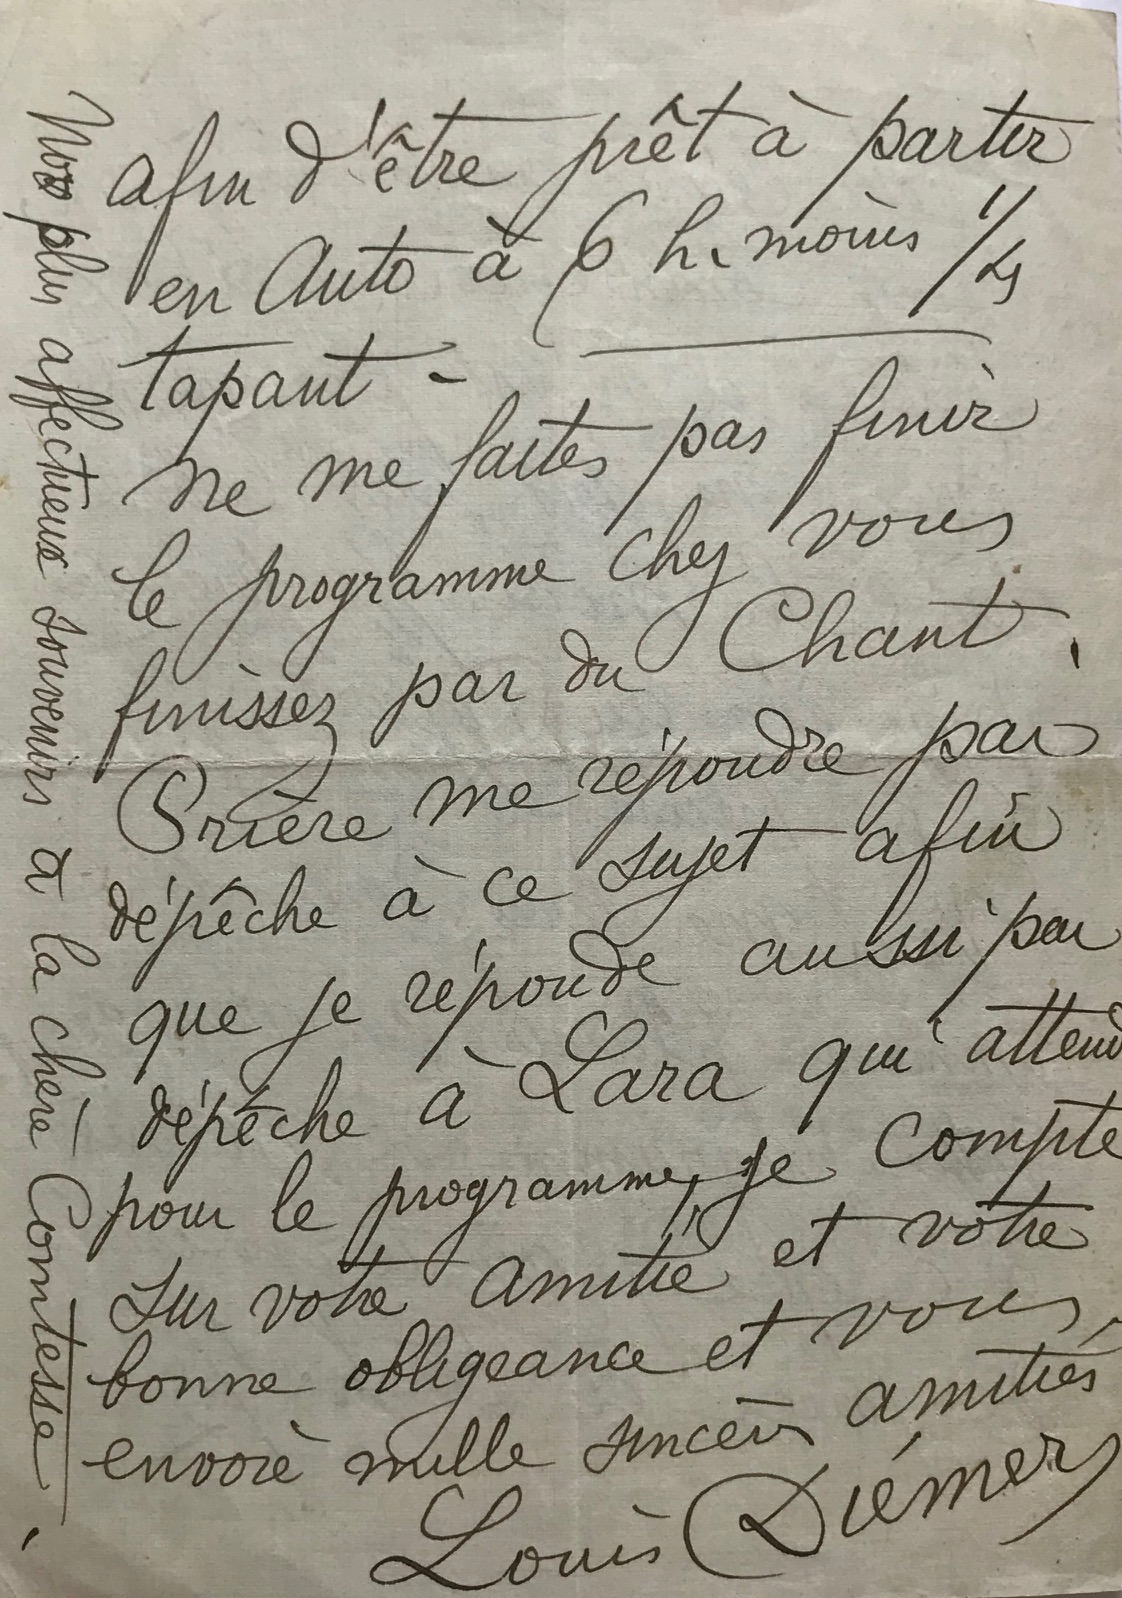 afin d'être prêt à partir
en Auto à 6 h. moins 1/4
tapant -
ne me faites pas finir
le programme chez vous
finissez par du Chant.
Prière me répondre par
dépêche à ce sujet afin
que je réponde aussi par
dépêche à Lara qui attend
pour le programme, je compte
sur votre amitié et votre
bonne obligeance et vous
envoie mille sincères amitiés
Louis Diémer
Nos plus affectueux souvenirs à la chère Comtesse.